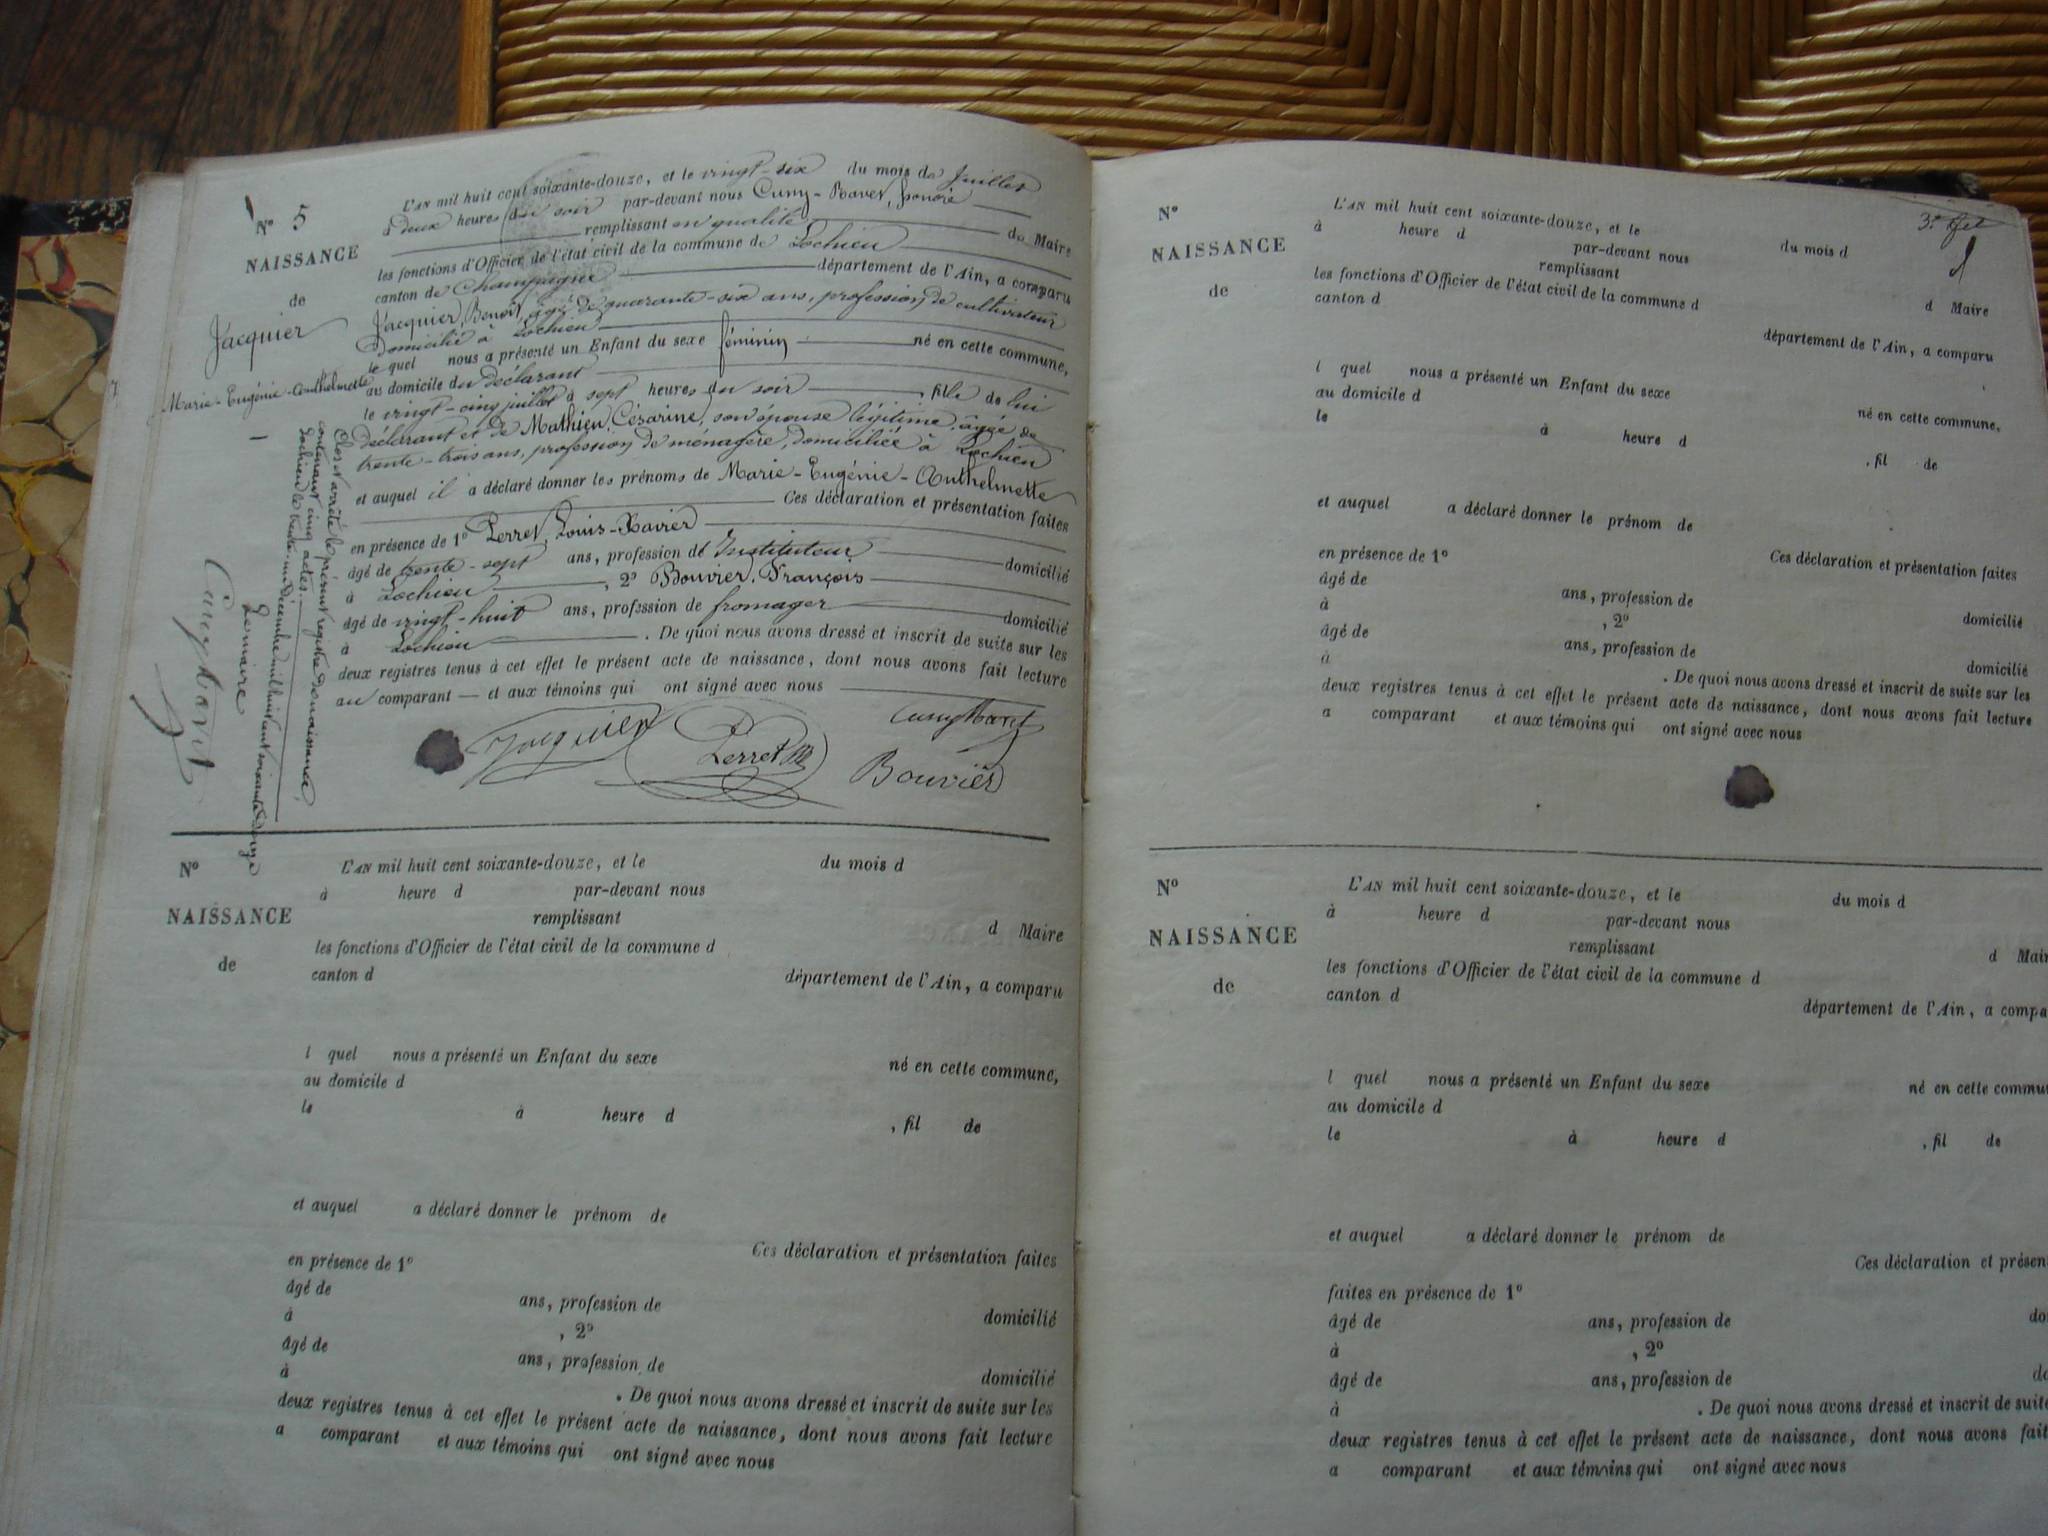 N° 5
NAISSANCE
de
Jacquier
Marie-Eugénie-Anthelmette
L'AN mil huit cent soixante-douze, et le vingt-six du mois de Juillet
à deux heures du soir par-devant nous Cuny-Ravet, honoré
remplissant en qualité de Maire
les fonctions d'Officier de l'état civil de la commune de Lochieu
canton de Champagne département de l'Ain, a comparu
Jacquier, Benoit, âgé de quarante-six ans, profession de cultivateur
domicilié à Lochieu
le quel nous a présenté un Enfant du sexe féminin né en cette commune,
au domicile du déclarant
le vingt-cinq juillet à sept heures du soir fille de lui
déclarant et de Mathieu, Césarine, son épouse légitime, âgée de
trente-trois ans, profession de ménagère, domiciliée à Lochieu
et auquel il a déclaré donner les prénoms de Marie-Eugénie-Anthelmette
Ces déclaration et présentation faites
en présence de 1° Perret, Louis-Xavier
âgé de trente-sept ans, profession d'Instituteur domicilié
à Lochieu, 2° Bouvier, François
âgé de vingt-huit ans, profession de fromager domicilié
à Lochieu. De quoi nous avons dressé et inscrit de suite sur les
deux registres tenus à cet effet le présent acte de naissance, dont nous avons fait lecture
au comparant et aux témoins qui ont signé avec nous
Jacquier Perret Cuny Ravet
Bouvier
Clos et arrêté le présent registre de naissance,
contenant cinq actes.
Lochieu le trente-un décembre mil huit cent soixante-douze
Le maire
Cuny Ravet
N°
NAISSANCE
de
L'AN mil huit cent soixante-douze, et le du mois d
à heure d par-devant nous
remplissant d Maire
les fonctions d'Officier de l'état civil de la commune d
canton d département de l'Ain, a comparu
l quel nous a présenté un Enfant du sexe né en cette commune,
au domicile d
le à heure d , fil de
et auquel a déclaré donner le prénom de
Ces déclaration et présentation faites
en présence de 1°
âgé de ans, profession de domicilié
à , 2°
âgé de ans, profession de domicilié
à . De quoi nous avons dressé et inscrit de suite sur les
deux registres tenus à cet effet le présent acte de naissance, dont nous avons fait lecture
a comparant et aux témoins qui ont signé avec nous
3e
N°
NAISSANCE
de
L'AN mil huit cent soixante-douze, et le du mois d
à heure d par-devant nous
remplissant d Maire
les fonctions d'Officier de l'état civil de la commune d
canton d département de l'Ain, a comparu
l quel nous a présenté un Enfant du sexe né en cette commune,
au domicile d
le à heure d , fil de
et auquel a déclaré donner le prénom de
Ces déclaration et présentation faites
en présence de 1°
âgé de ans, profession de domicilié
à , 2°
âgé de ans, profession de domicilié
à . De quoi nous avons dressé et inscrit de suite sur les
deux registres tenus à cet effet le présent acte de naissance, dont nous avons fait lecture
a comparant et aux témoins qui ont signé avec nous
N°
NAISSANCE
de
L'AN mil huit cent soixante-douze, et le du mois d
à heure d par-devant nous
remplissant d Mair
les fonctions d'Officier de l'état civil de la commune d
canton d département de l'Ain, a compa
l quel nous a présenté un Enfant du sexe né en cette commu
au domicile d
le à heure d , fil de
et auquel a déclaré donner le prénom de
Ces déclaration et présen
faites en présence de 1°
âgé de ans, profession de do
à , 2°
âgé de ans, profession de do
à . De quoi nous avons dressé et inscrit de suit
deux registres tenus à cet effet le présent acte de naissance, dont nous avons fait
a comparant et aux témoins qui ont signé avec nous